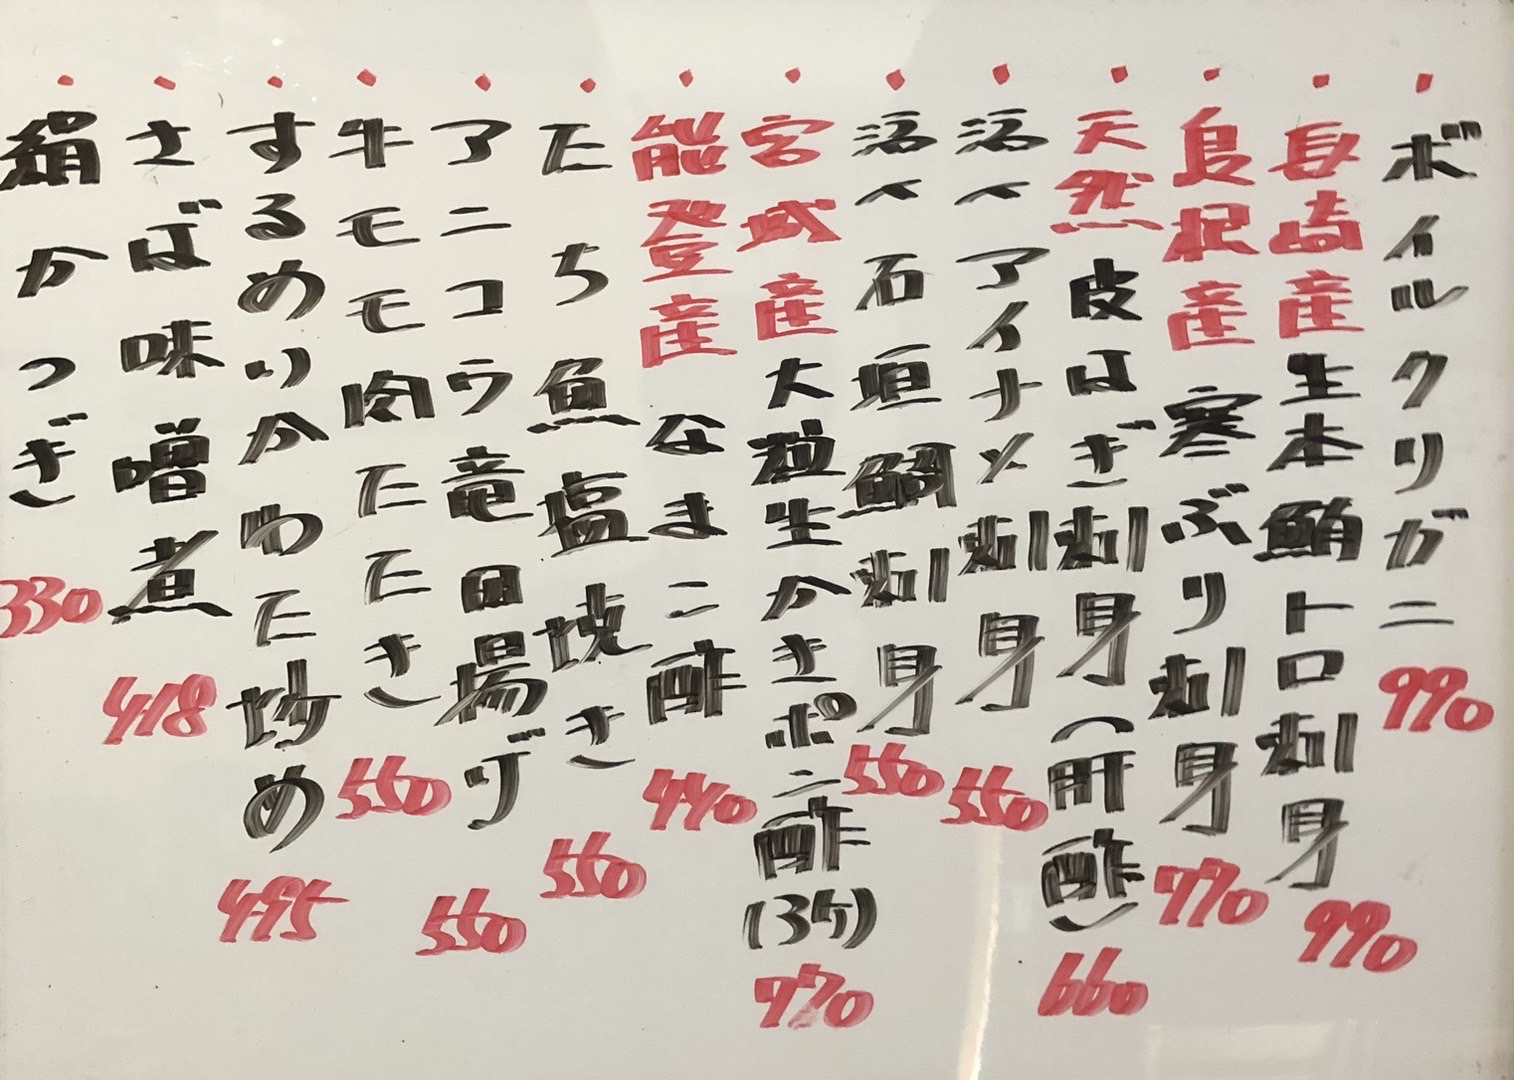 ・ボイルクリガニ 990
・長崎産生本鮪トロ刺身 990
・島根産寒ぶり刺身 770
・天然皮はぎ刺身(肝酢) 660
・活〆アイナメ刺身 550
・活〆石垣鯛刺身 550
・宮城産大粒生かきポン酢(3ケ) 770
・能登産なまこ酢 440
・たち魚塩焼き 550
・アンコウ竜田揚げ 550
・牛モモ肉たたき 550
・するめいかわた炒め 495
・さば味噌煮 418
・絹かつぎ 330